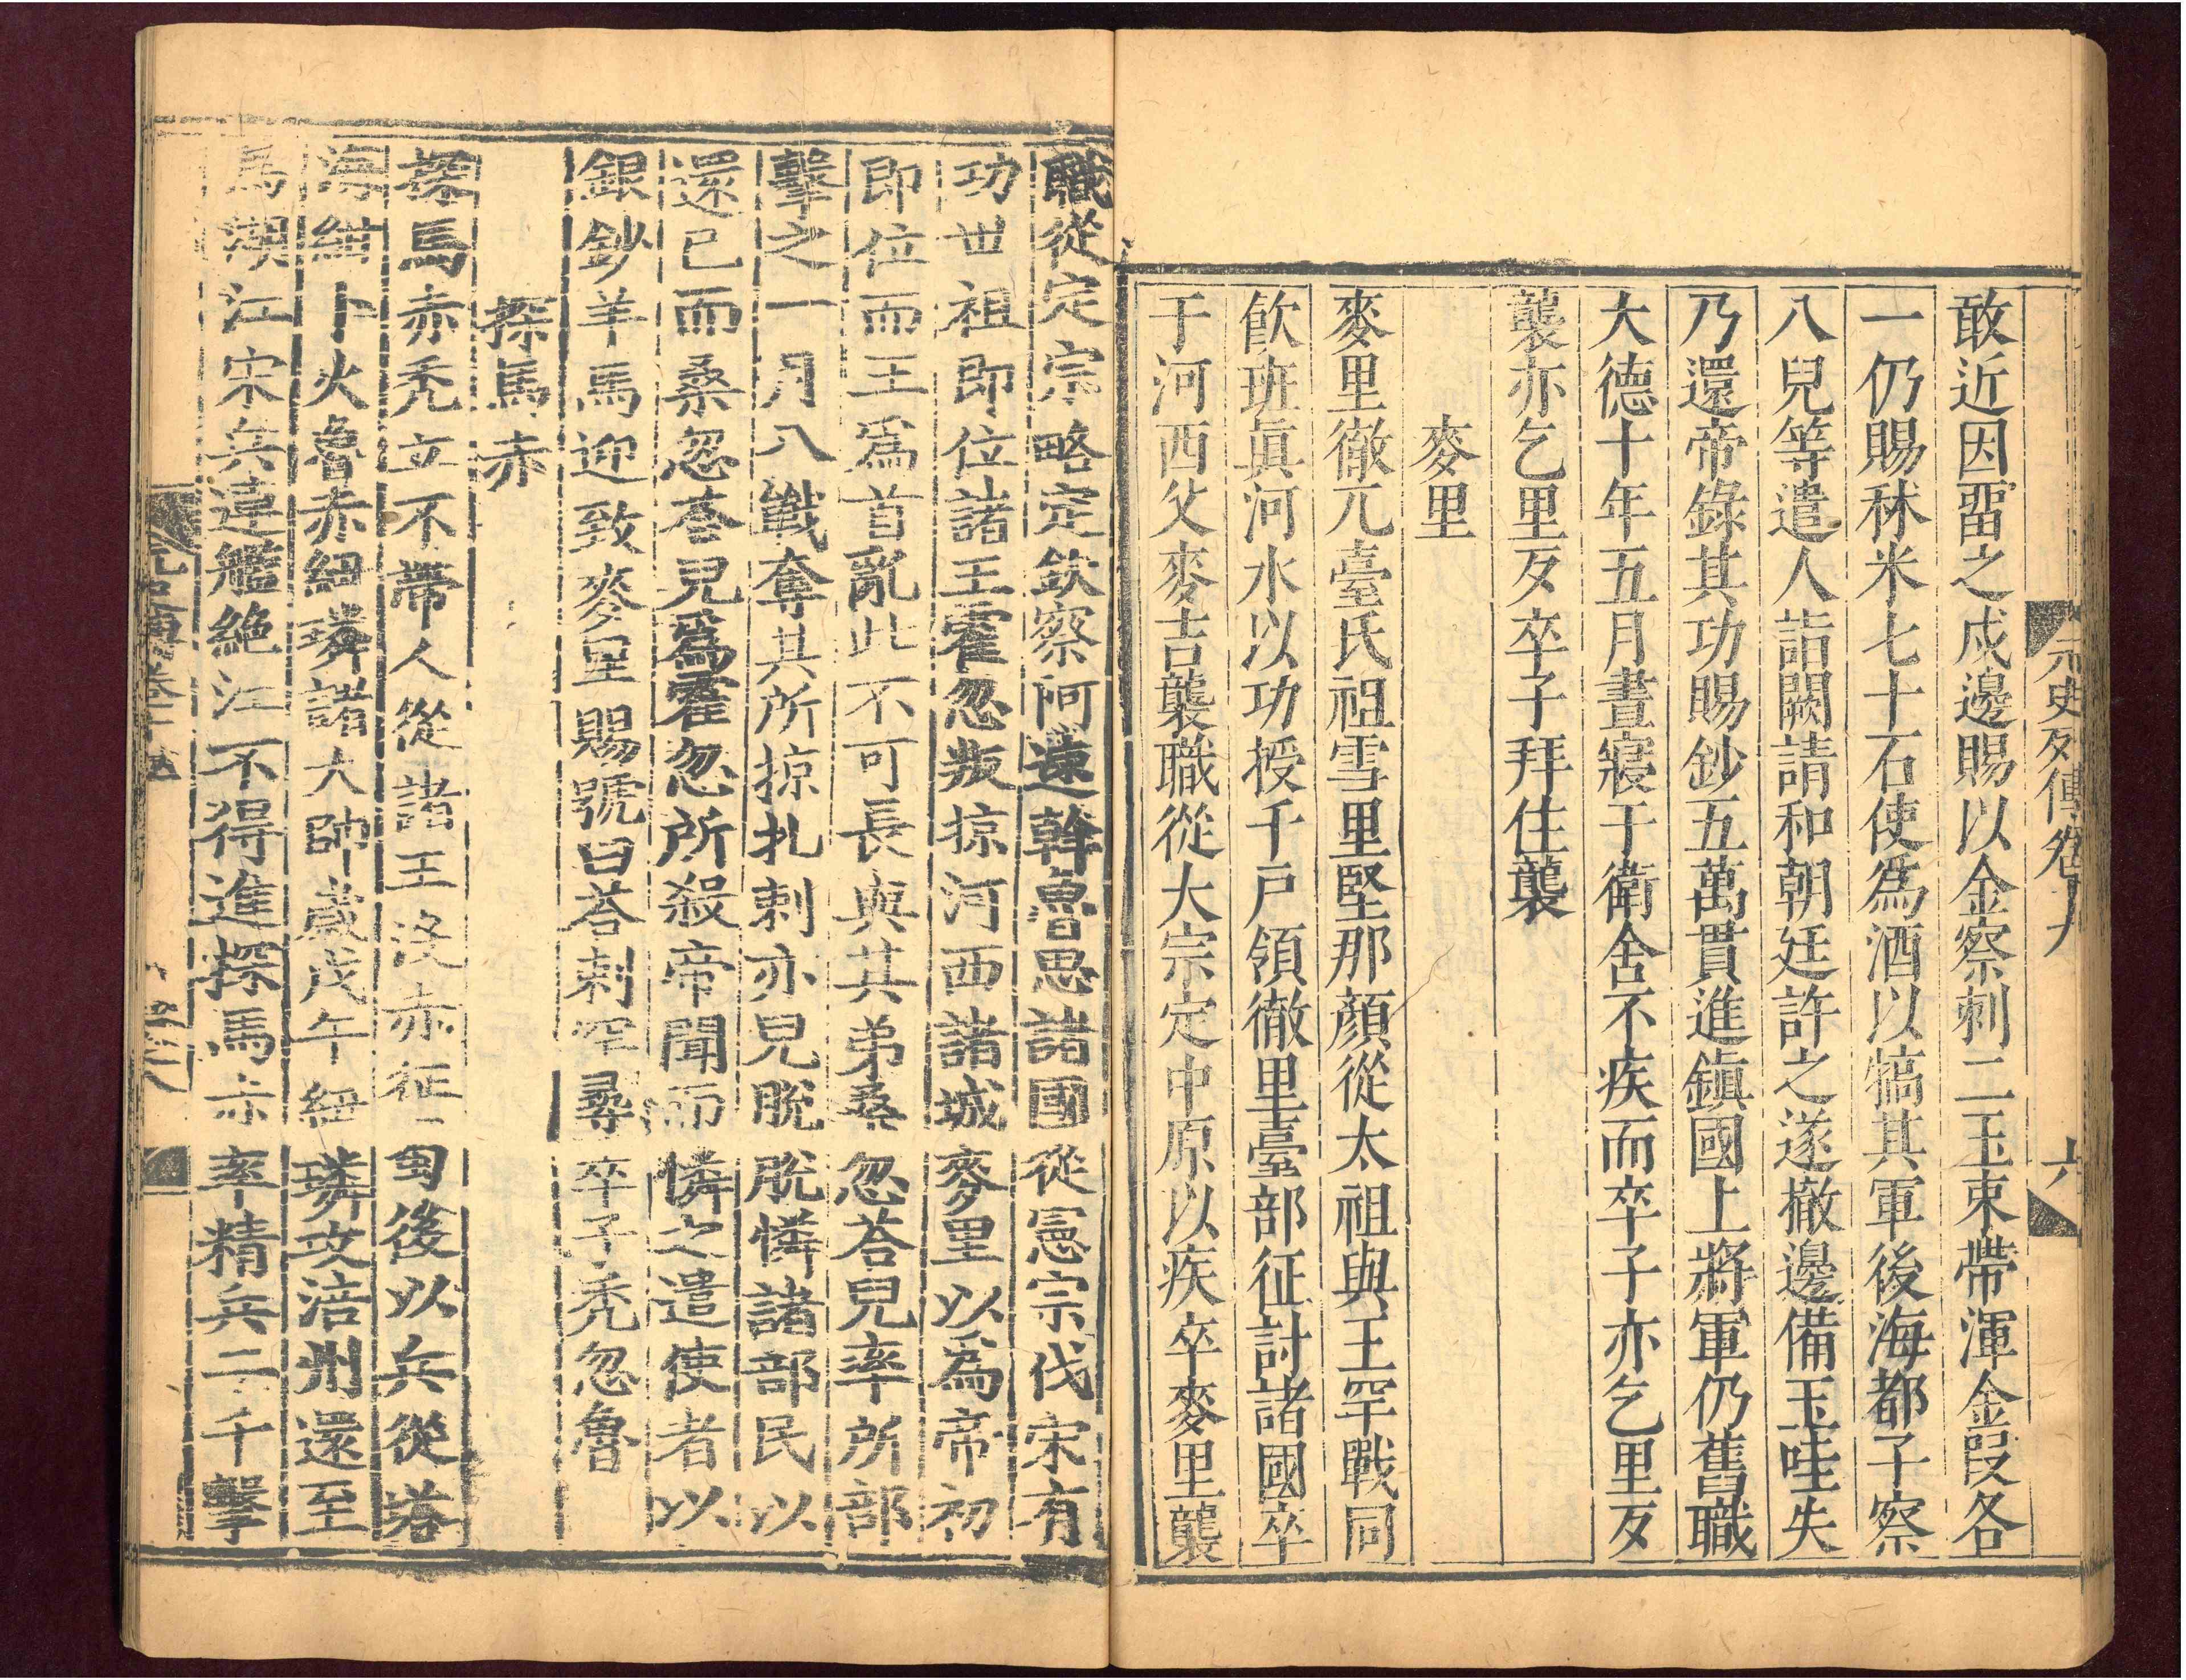 元史列傳卷十九
六
敢近因畱之戍邊賜以金察剌二玉束帶渾金段各
一仍賜秫米七十石使爲酒以犒其軍後海都子察
八兒等遣人詣闕請和朝廷許之遂撤邊備玉哇失
乃還帝錄其功賜鈔五萬貫進鎭國上將軍仍舊職
大德十年五月晝寢于衛舍不疾而卒子亦乞里歹
襲亦乞里歹卒子拜住襲
麥里
麥里徹兀臺氏祖雪里堅那顏從太祖與王罕戰同
飮班眞河水以功授千戶領徹里臺部征討諸國卒
于河西父麥吉襲職從大宗定中原以疾卒麥里襲
職從定宗略定欽察阿速斡魯思諸國從憲宗伐宋有
功世祖即位諸王霍忽叛掠河西諸城麥里以爲帝初
即位而王爲首亂此不可長與其弟桑忽荅兒率所部
擊之一月八戰奪其所掠扎剌亦兒脫脫憐諸部民以
還已而桑忽荅兒爲霍忽所殺帝聞而憐之遣使者以
銀鈔羊馬迎致麥里賜號曰荅剌罕尋卒子禿忽魯
探馬赤
探馬赤禿立不帶人從諸王沒赤征蜀後以兵從塔
海紺卜火魯赤紐璘諸大帥歲戊午紐璘攻涪州還至
馬湖江宋兵連艦絕江不得進探馬赤率精兵二千擊